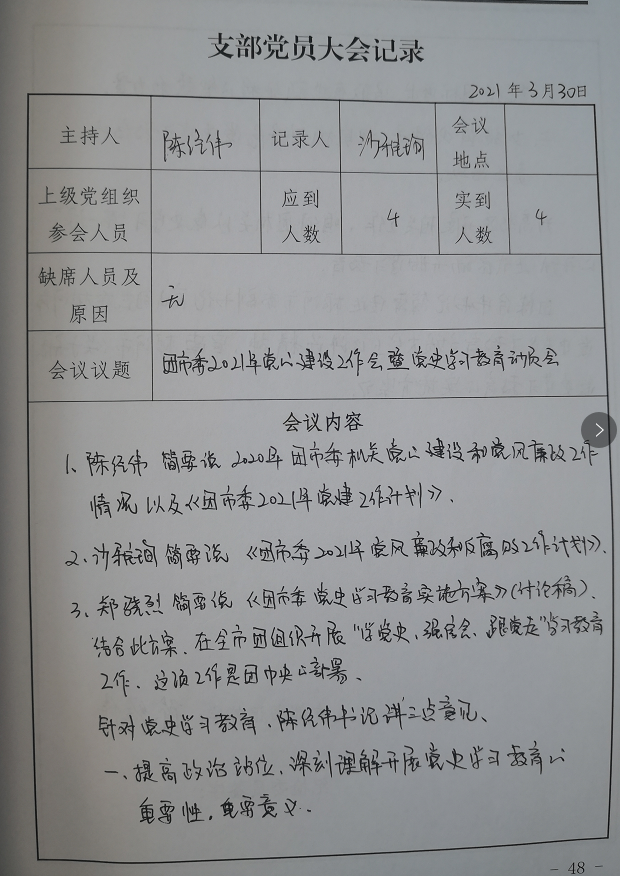 支部党员大会记录
2021年3月30日
主持人 陈经伟 记录人 沙雅珣 会议地点
上级党组织参会人员 应到人数 4 实到人数 4
缺席人员及原因 无
会议议题 团市委2021年党的建设工作会暨党史学习教育动员会
会议内容
1、陈经伟 简要说 2020年团市委机关党的建设和党风廉政工作
情况以及《团市委2021年党建工作计划》.
2、沙雅珣 简要说 《团市委2021年党风廉政和反腐败工作计划》.
3、郑骁烈 简要说 《团市委党史学习教育实施方案》(讨论稿).
结合此方案、在全市团组织开展“学党史、强信念、跟党走”学习教育
工作、这项工作是团中央的部署、
针对党史学习教育、陈经伟书记讲三点意见、
一、提高政治站位、深刻理解开展党史学习教育的
重要性,重要意义.
- 48 -